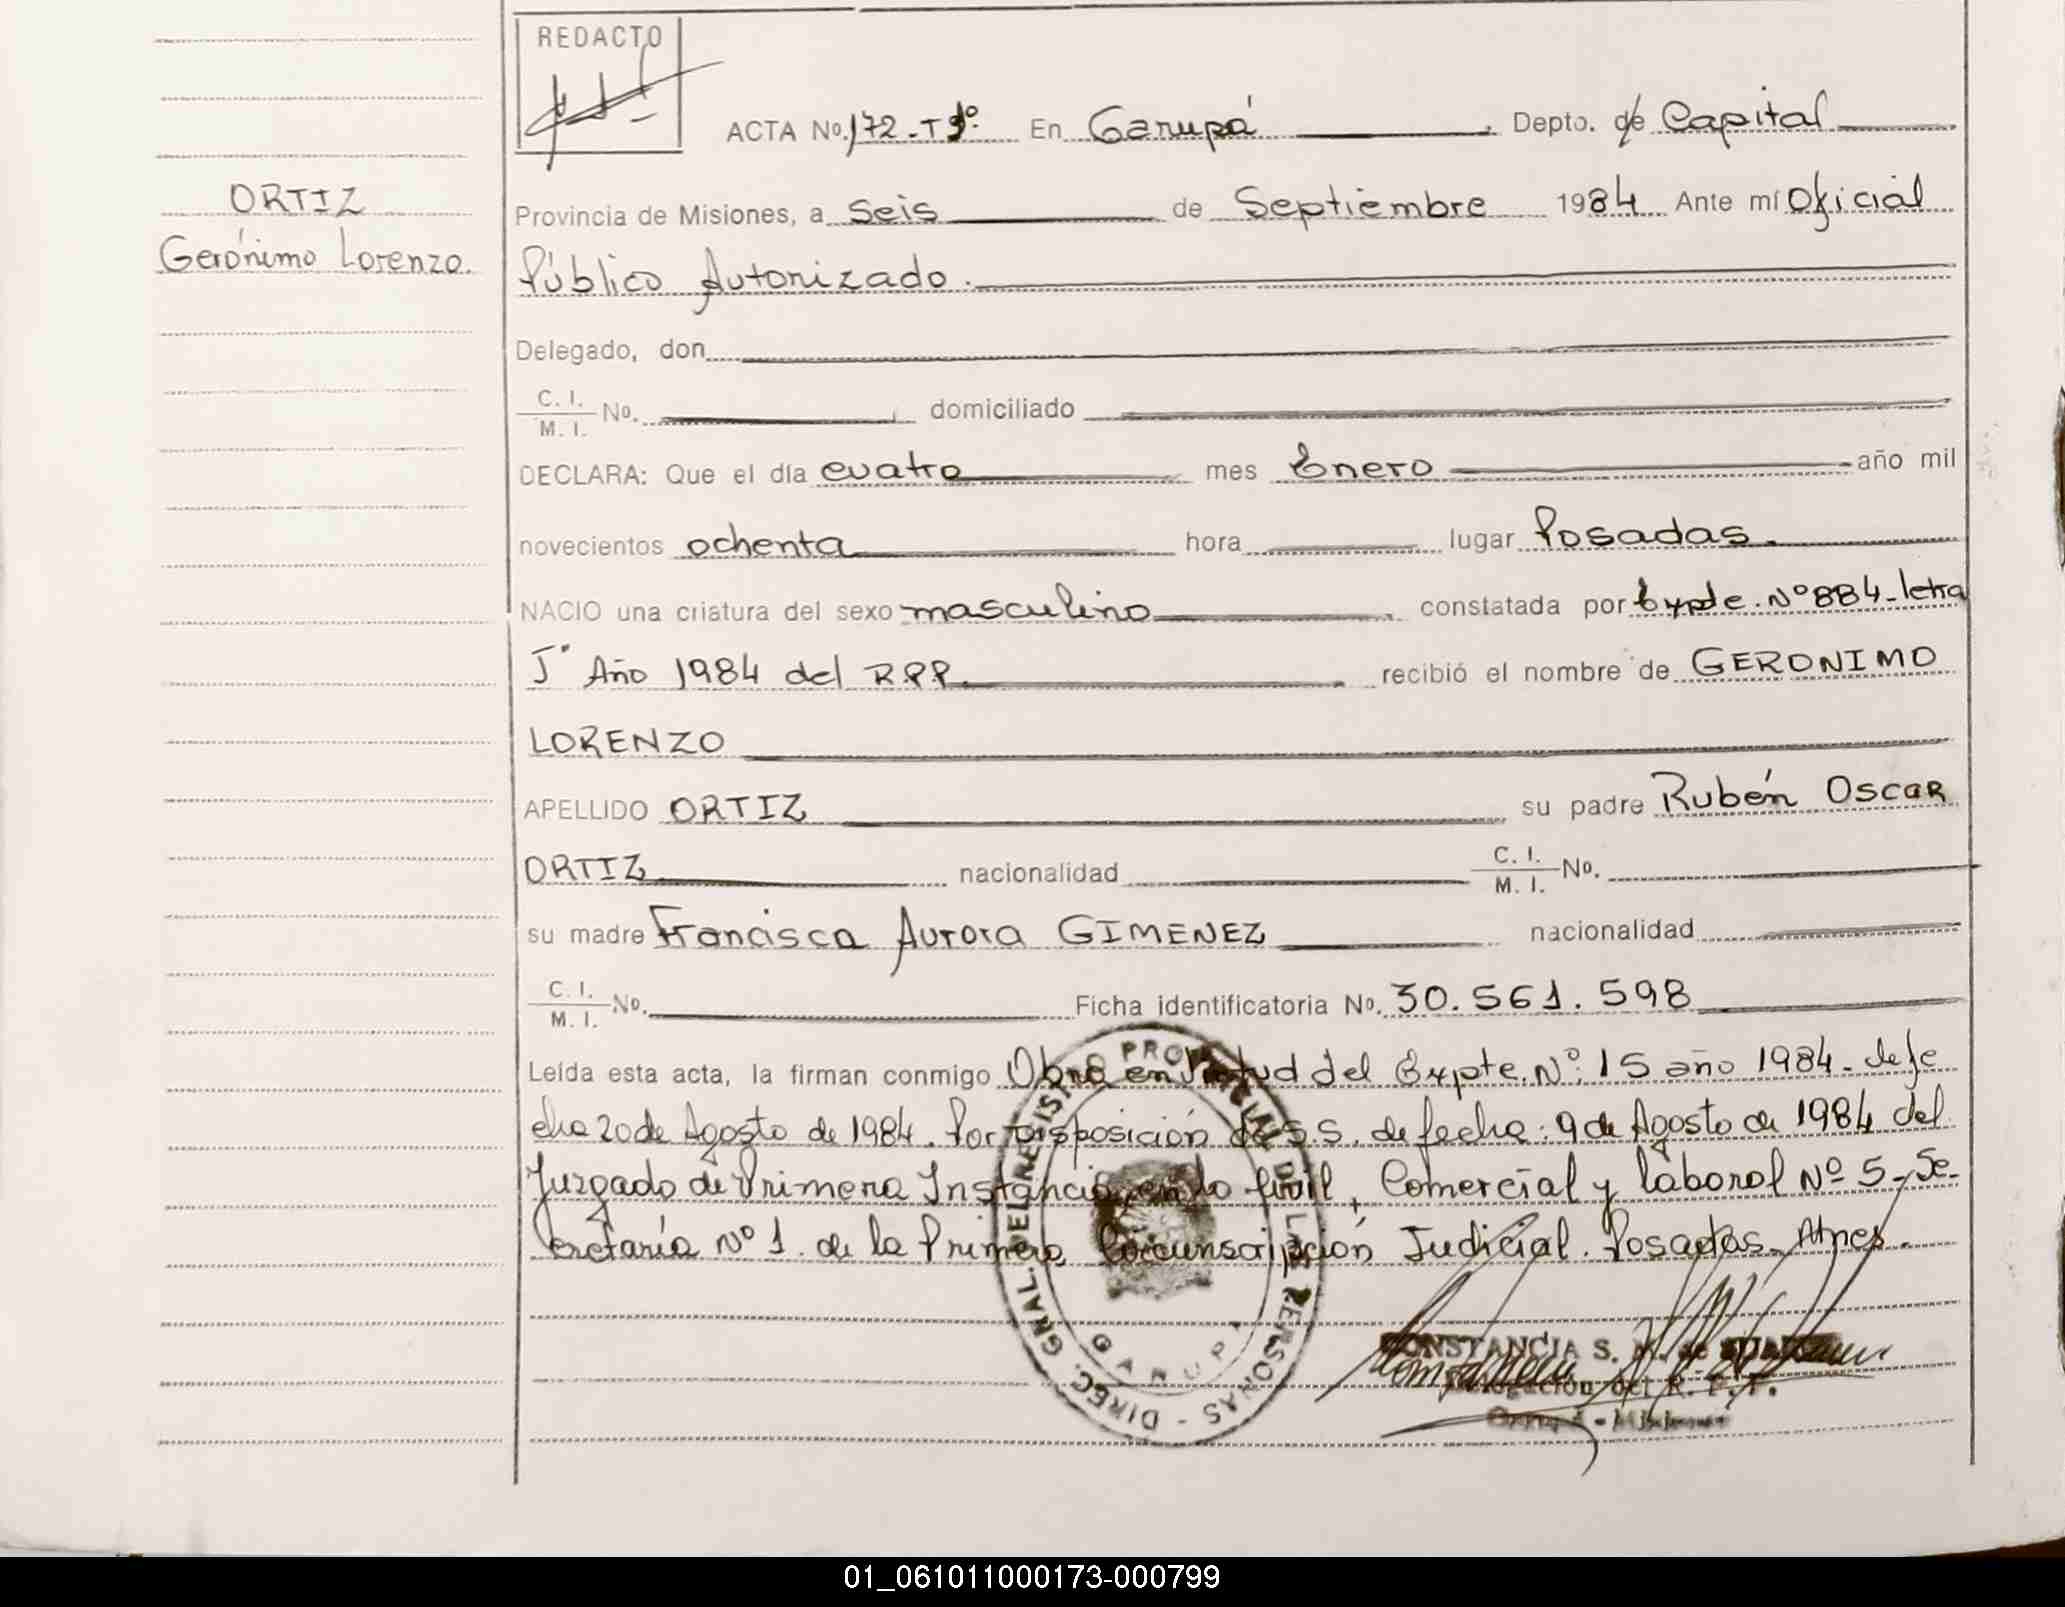 REDACTO
ACTA No. 172-T1º. En Garupá Depto. de Capital
ORTIZ
Gerónimo Lorenzo.
Provincia de Misiones, a seis de Septiembre 1984 Ante mí Oficial
Público Autorizado.
Delegado, don
C. I.
M. I. No. domiciliado
DECLARA: Que el día cuatro mes Enero año mil
novecientos ochenta hora lugar Posadas.
NACIO una criatura del sexo masculino constatada por Expte. Nº 884-letra
J" Año 1984 del RPP. recibió el nombre de GERONIMO
LORENZO
APELLIDO ORTIZ su padre Rubén Oscar
ORTIZ nacionalidad C. I. M. I. No.
su madre Francisca Aurora GIMENEZ nacionalidad
C. I. M. I. No. Ficha identificatoria No. 30.561.598
Leída esta acta, la firman conmigo Obra en Virtud del Expte. Nº: 15 año 1984. de fe
cha 20 de Agosto de 1984. Por disposición de S.S. de fecha: 9 de Agosto de 1984 del
Juzgado de Primera Instancia en lo Civil, Comercial y laboral Nº 5 - Se-
cretaría Nº 1. de la Primera Circunscripción Judicial. Posadas. Mnes.
DIREC. GRAL. DEL REGISTRO PROVINCIAL DE LAS PERSONAS -
GARUPA
CONSTANCIA S. M. de
Delegación del R. P. P.
Garupá - Misiones
01_061011000173-000799